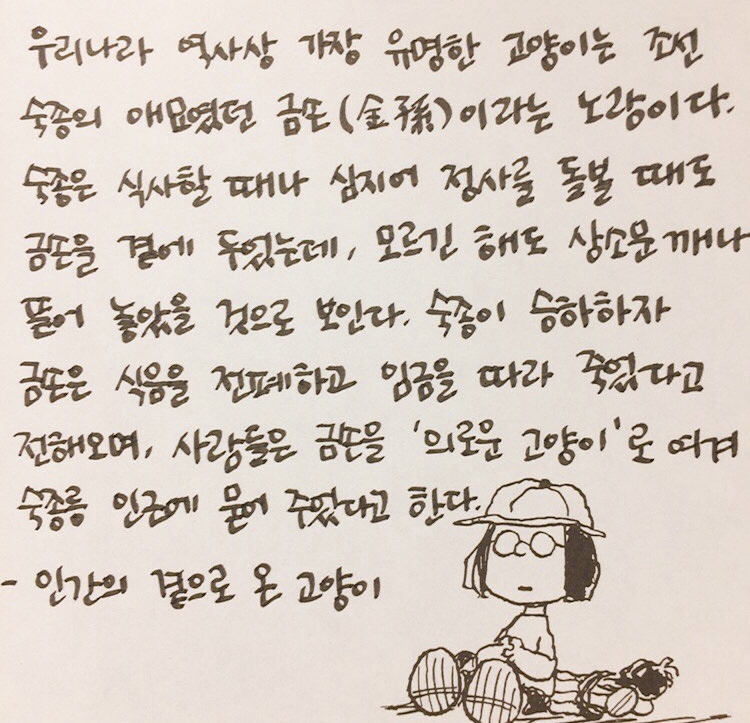 우리나라 역사상 가장 유명한 고양이는 조선
숙종의 애묘였던 금손(金孫)이라는 노랑이다.
숙종은 식사할 때나 심지어 정사를 돌볼 때도
금손을 곁에 두었는데, 모르긴 해도 상소문 깨나
뜯어 놓았을 것으로 보인다. 숙종이 승하하자
금손은 식음을 전폐하고 임금을 따라 죽었다고
전해오며, 사람들은 금손을 '의로운 고양이'로 여겨
숙종릉 인근에 묻어 주었다고 한다.
- 인간의 곁으로 온 고양이